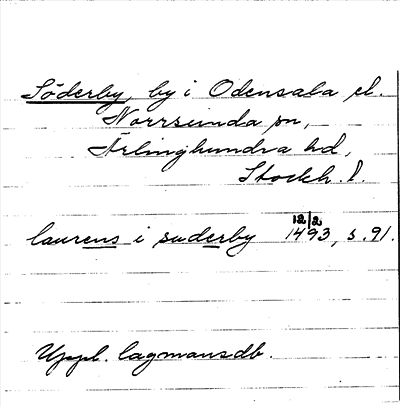 Söderby, by i Odensala el.
Norrsunda sn,
Ärlinghundra hd,
Stockh. l.
laurens i suderby 12/2 1493, s. 91.
Uppl. lagmansdb.